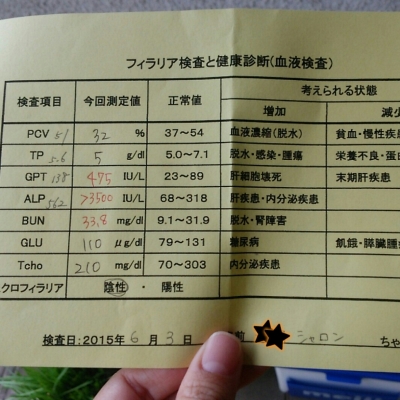 フィラリア検査と健康診断(血液検査)
検査項目 今回測定値 正常値 考えられる状態
増加 減少
PCV 51 32 % 37～54 血液濃縮(脱水) 貧血・慢性疾患
TP 5.6 5 g/dl 5.0～7.1 脱水・感染・腫瘍 栄養不良・蛋白
GPT 138 475 IU/L 23～89 肝細胞壊死 末期肝疾患
ALP 562 >3500 IU/L 68～318 肝疾患・内分泌疾患
BUN 33.8 mg/dl 9.1～31.9 脱水・腎障害
GLU 110 μg/dl 79～131 糖尿病 飢餓・膵臓腫
Tcho 210 mg/dl 70～303 内分泌疾患
クロフィラリア 陰性 ・ 陽性
検査日:2015年 6 月 3 日 前 シャロン ちゃ